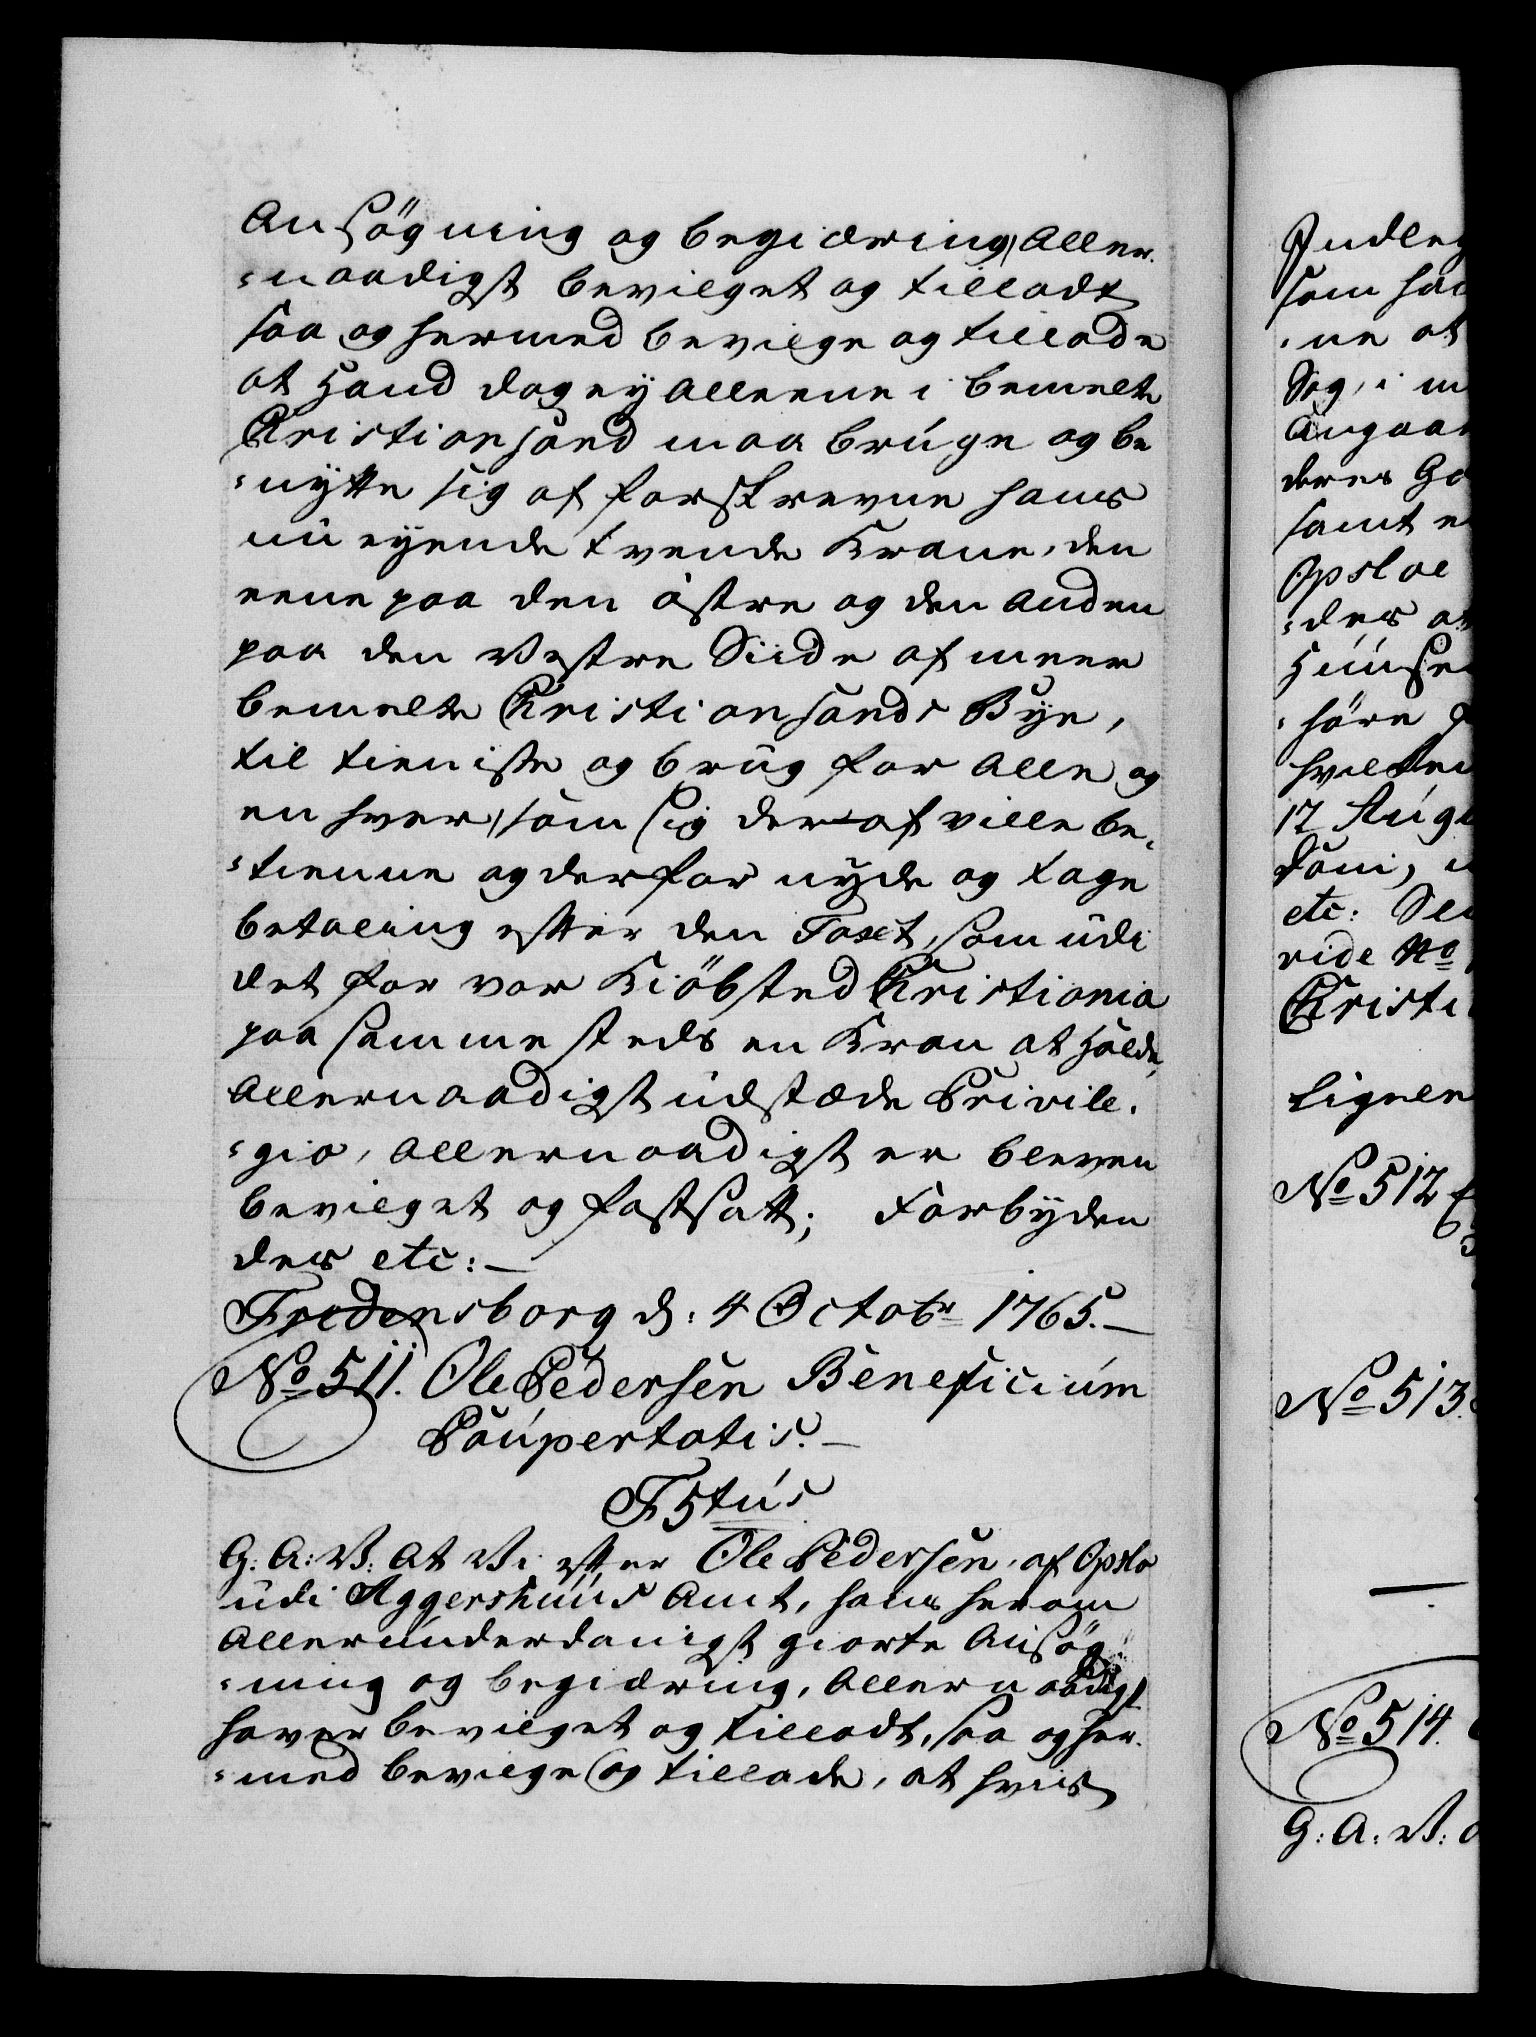 Ansögning og begiæring, Aller-
=naadigst bevilget og tilladt
saa og hermed bevilge og tillade
at Hand dog ey alleene i bemelte
Christiansand maa brúge og be
=nytte sig af forskrevne hans
nu eyende tvende Krane, den
eene paa den östre og den anden
paa den Vestre Siide af meer
bemelte Christiansands Bye,
til tieniste og brúg for Alle og
en hver, som sig deraf ville be-
=tienne og derfor nyde og tage
betaling efter den Taxt, som udi
det for vor Kiöbsted Christiania
paa samme steds en Kran at Holde,
Allernaadigst udstæde Privile-
=gio, Allernaadigst er bleven
bevilget og fastsatt; Forbyden
des etc:—
Fredensborg d: 4 Octobr 1765.—
No 511. Ole Pedersen Beneficium
Paupertatis.—
F5tús
G: A: V: At Vi efter Ole Pedersen, af Opslo
udi Aggershuus Amt, hans herom
Allerunderdanigst giorte Ansög-
=ning og begiæring, Allernaadigst
haver bevilget og tilladt, saa og her-
=med bevilge og tillade, at hviis
Indleg
som ha
=ne at
Sag, i
Angaa
deres Go
samt e
Opsloe
=des
Huuse
=höre
hvilken
17 Aug
Dom,
etc:
vide No
Christi
Lignen
No 512
No 513.
No 514.
G: A: V: